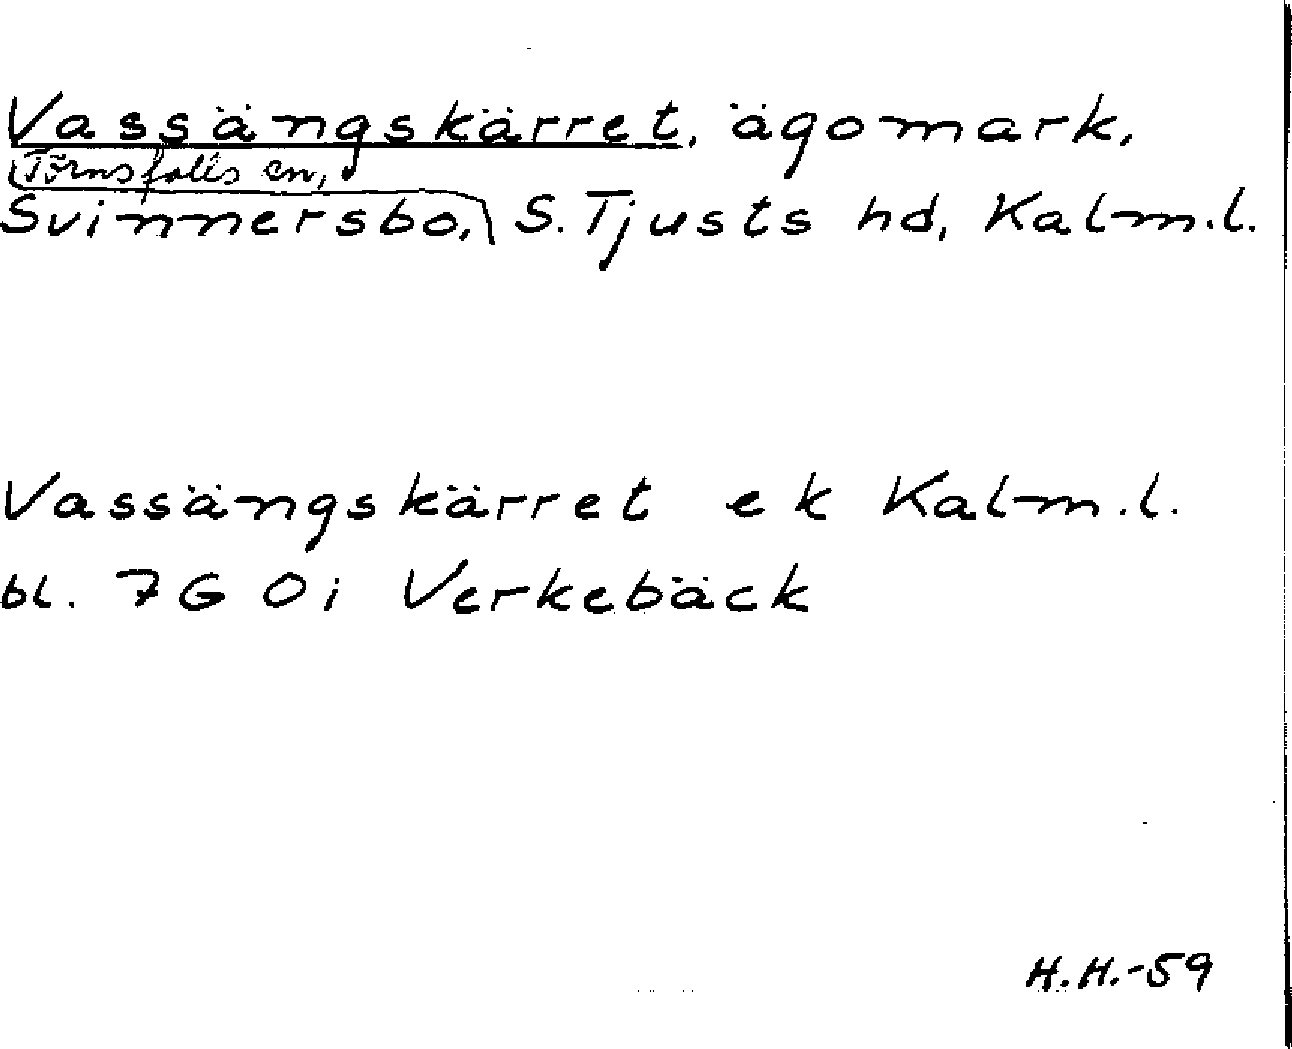 Vassängskärret, ägomark,
Törnsfalls sn,
Svinnersbo, S. Tjusts hd, Kalm.l.
Vassängskärret ek Kalm.l.
bl. 7G 0i Verkebäck
H.H.-59